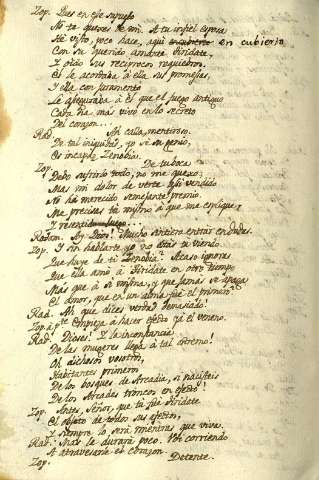 Zop. Pues en ese supuesto
No te quejes de mi. A tu infiel esposa
He visto, poco hace, aqui encubierto en cubierto
Con su querido amante Tiridate,
I oido sus reciprocos requiebros.
El le acordaba á ella sus promesas,
I ella con juramento
Le aseguraba á él que el fuego antiguo
Cada dia mas vivo en lo secreto
Del corazon...
Rad. Ah calla, mentiroso.
De tal iniquidad, yo sé su genio,
Es incapaz Zenobia.
Zop. De tu boca
Debo sufrirlo todo, no me quexo;
Mas mi dolor de verte asi vendido
No há merecido semejante premio.
Me precisas tu mismo á que me esplique,
I
Radam. Ay Dios! Mucho siento entrar en dudas.
Zop. I sin hablarte yo no estás tu viendo
Que huye de ti Zenobia? Acaso ignoras
Que ella amó á Tiridate en otro tiempo
Más que á si misma, y que jamás se apaga
El amor, que en un alma fué el primero?
Rad. Ah que dices verdad demasiado!
Zop. á pte. Comienza á hacer efecto yá el veneno.
Rad. Dioses! I la inconstancia
De las mugeres llega á tal estremo!
Oh dichosos vosotros,
Habitantes primeros
De los bosques de Arcadia, si nacisteis
De los Arboles troncos en efecto!
Zop. Antes, Señor, que tu fué Tiridate
El objeto de todos sus efectos,
I siempre lo será mientras que viva.
Rad. Mas le durará poco. Voi corriendo
A atravesarle el corazon.
Zop. Detente.